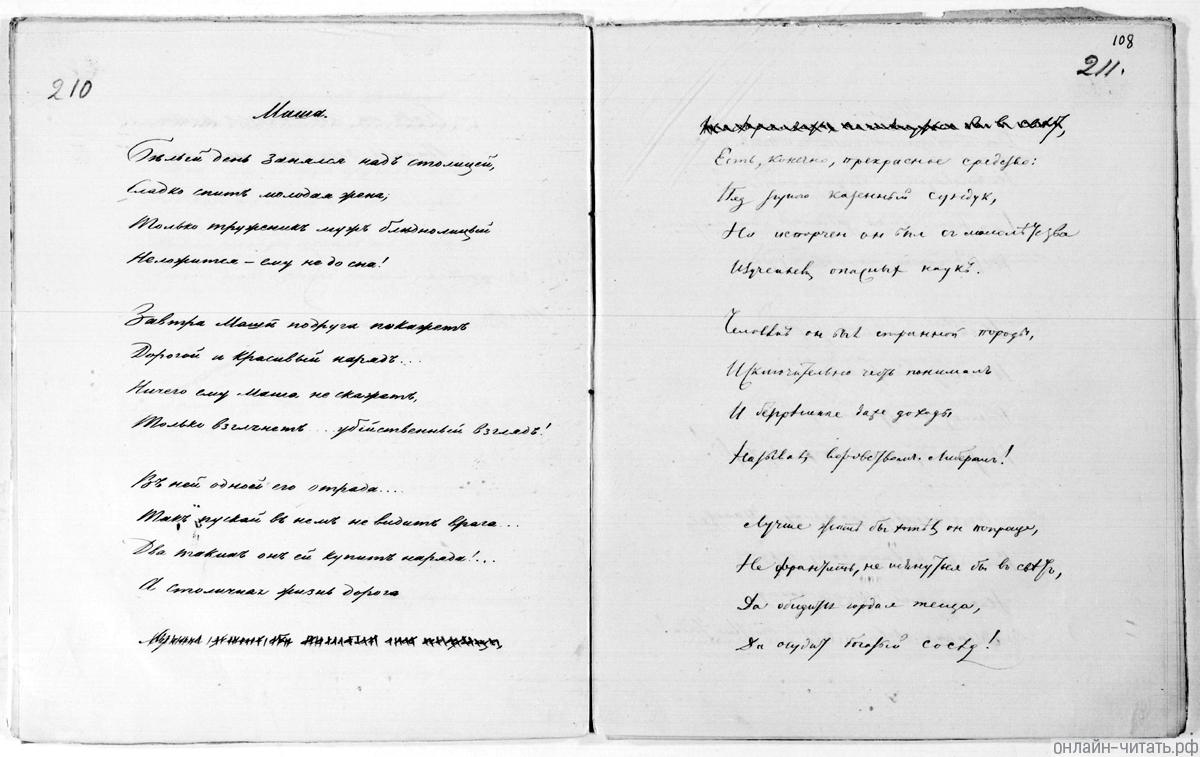 210
Маша.
Бѣлый день занялся надъ столицей,
Сладко спитъ молодая жена;
Только труженикъ мужъ блѣднолицый
Неложится – ему не до сна!
Завтра Машѣ подруга покажетъ
Дорогой и красивый нарядъ...
Ничего ему Маша не скажетъ,
Только взглянетъ... убійственный взглядъ!
Въ ней одной его отрада...
Такъ пускай въ немъ не видитъ врага...
Два такихъ онъ ей купитъ наряда!...
А столичная жизнь дорога
108
211.
Есть, конечно, прекрасное средство:
Под рукою казенный сундук,
Но испорчен он был съ малолѣтства
Изученьем опасных наукъ.
Человѣкъ он былъ странной породы,
Исключительно честь понимал
И безгрѣшные даже доходы
Называл воровством либерал!
Лучше жить бы хотѣл он попроще,
Не франтить, не тянуться бы в свѣтъ,
Да обидится гордая теща,
Да осудит богатый сосѣд!
онлайн-читать.рф